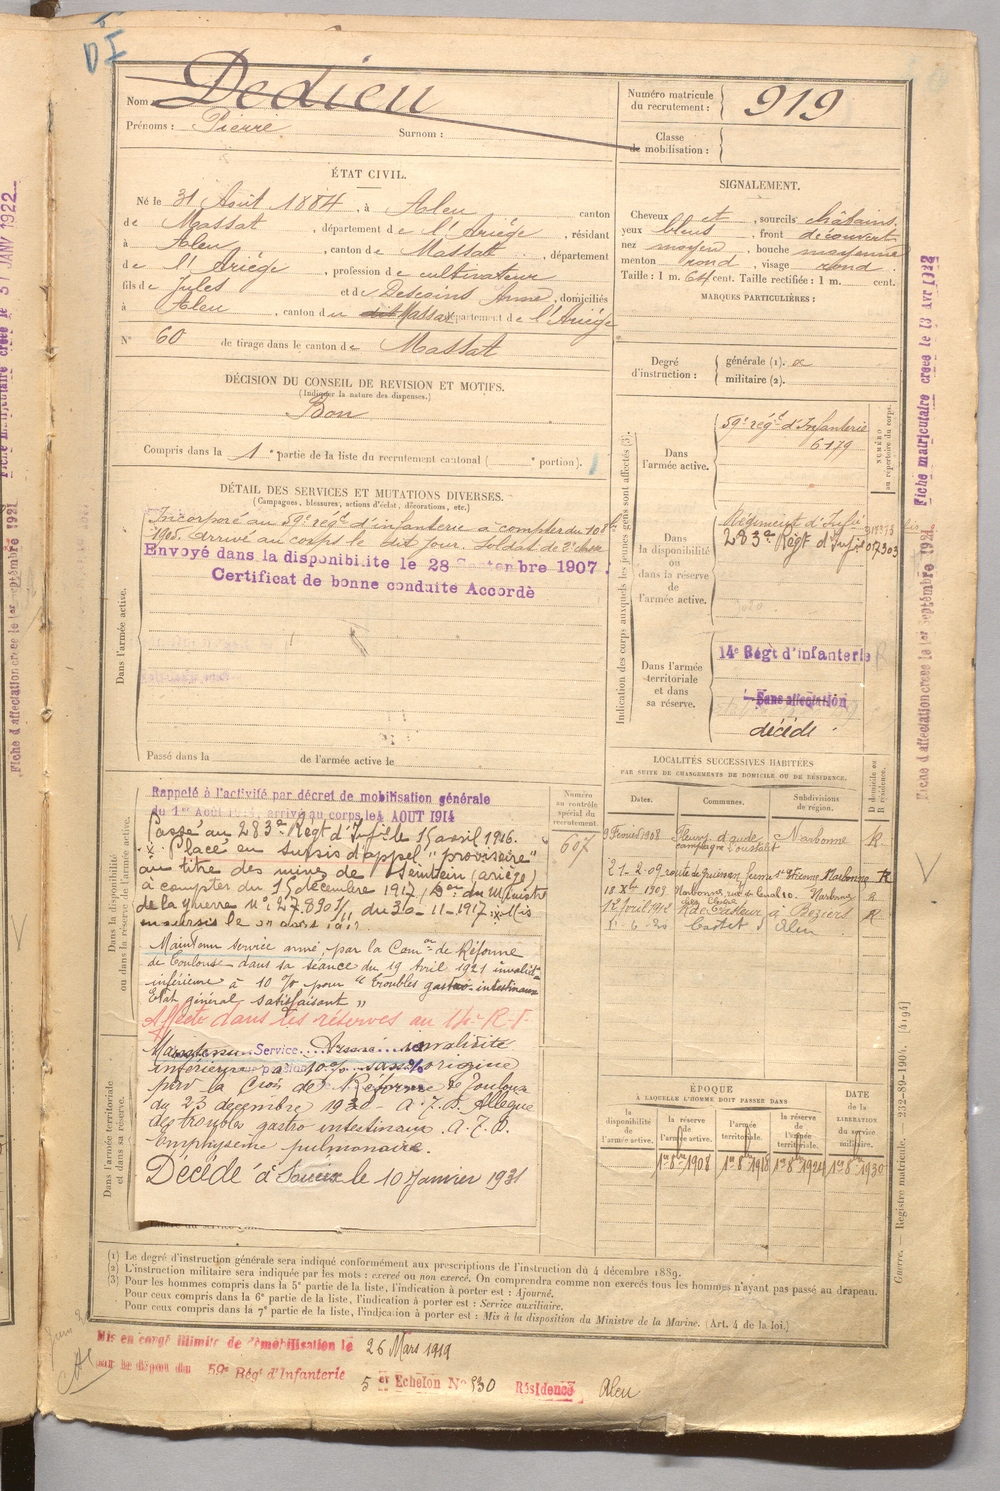 DI
Nom Dedieu
Prénoms : Pierre Surnom :
Numéro matricule
du recrutement : 919
Classe
de mobilisation :
ÉTAT CIVIL.
Né le 31 Août 1884, à Aleu canton
de Massat, département de l'Ariége, résidant
à Aleu, canton de Massat, département
de l'Ariége, profession de cultivateur
fils de Jules et de Anne, domiciliés
à Aleu, canton du Massat département de l'Ariége
N° 60 de tirage dans le canton de Massat
SIGNALEMENT.
Cheveux et, sourcils châtains.
yeux bleus, front découvert
nez moyen, bouche moyenne
menton rond, visage rond.
Taille : 1 m. 64 cent. Taille rectifiée : 1 m. cent.
MARQUES PARTICULIÈRES :
Degré
d'instruction :
générale (1).
militaire (2).
DÉCISION DU CONSEIL DE REVISION ET MOTIFS.
(Indiquer la nature des dispenses.)
Bon
Compris dans la 1e partie de la liste du recrutement cantonal ( e portion).
DÉTAIL DES SERVICES ET MUTATIONS DIVERSES.
(Campagnes, blessures, actions d'éclat, décorations, etc.)
Dans l'armée active.
Incorporé au 59e régt d'infanterie à compter du 10 8bre
1905. Arrivé au corps le dit jour. Soldat de 2e classe
Envoyé dans la disponibilité le 28 Septembre 1907
Certificat de bonne conduite Accordè
Passé dans la de l'armée active le
Indication des corps auxquels les jeunes gens sont affectés (3).
NUMÉRO
au répertoire du corps.
Dans
l'armée active.
59e régt d'Infanterie
6179
Dans
la disponibilité
ou
dans la réserve
de
l'armée active.
Régiment d'Infie
283e Régt d'Infie 017303
Dans l'armée
territoriale
et dans
sa réserve.
14e Régt d'Infanterie
Sans affectation
décédé.
Dans la disponibilité
ou dans la réserve de l'armée active.
Rappelé à l'activité par décret de mobilisation générale
du 1er Août 1914, arrivé au corps le 4 AOUT 1914
Passé au 283e Régt d'Infie le 15 avril 1916.
.x. Placé en sursis d'appel "provisoire"
au titre des mines de Sentein (ariège)
à compter du 15 décembre 1917, Don du Ministre
de la guerre N° 27.890 3/11 du 30-11-1917 :x: Mis
Maintenu service armé, par la Comon de Réforme
de Toulouse dans sa séance du 19 Avril 1921 invalidité
inférieure à 10% pour "troubles gastro-intestinaux
Etat général satisfaisant "
Affecté dans les réserves au 14e R.I.
Maintenu Service Armé invalidité
inférieure à 10% sans origine
par la Cron de Réforme de Toulouse
du 23 décembre 1930 - A.7.D. Allègue
des troubles gastro intestinaux. A.7.D.
emphysème pulmonaire.
Décédé à le 10 Janvier 1931
Dans l'armée territoriale
et dans sa réserve.
Numéro
au contrôle
spécial du
recrutement.
607
LOCALITÉS SUCCESSIVES HABITÉES
PAR SUITE DE CHANGEMENTS DE DOMICILE OU DE RÉSIDENCE.
Dates. Communes. Subdivisions
de région. D domicile ou
R résidence.
9 Février 1908 Fleury d'aude Narbonne R.
campagne
21-2-09 route de Narbonne R
18 Xbre 1909 Narbonne, rue 10. Narbonne R
12 avril 1912 à Béziers R
Castet d'Aleu
ÉPOQUE
À LAQUELLE L'HOMME DOIT PASSER DANS
DATE
de la
LIBÉRATION
du service
militaire.
la
disponibilité
de
l'armée active.
la réserve
de
l'armée active.
l'armée
territoriale.
la réserve
de
l'armée
territoriale.
1er 8bre 1908 1er 8bre 1918 1er 8bre 1924 1er 8bre 1930
(1) Le degré d'instruction générale sera indiqué conformément aux prescriptions de l'instruction du 4 décembre 1889.
(2) L'instruction militaire sera indiquée par les mots : exercé ou non exercé. On comprendra comme non exercés tous les hommes n'ayant pas passé au drapeau.
(3) Pour les hommes compris dans la 5e partie de la liste, l'indication à porter est : Ajourné.
Pour ceux compris dans la 6e partie de la liste, l'indication à porter est : Service auxiliaire.
Pour ceux compris dans la 7e partie de la liste, l'indication à porter est : Mis à la disposition du Ministre de la Marine. (Art. 4 de la loi.)
Mis en congé illimité de démobilisation le 26 Mars 1919
par le dépôt du 59e Régt d'Infanterie
5 er Echelon N° 930 Résidence Aleu
Guerre. — Registre matricule. 232-89-1904. [4194]
Fiche d'affectation créée le 1er Septembre 1921. Fiche matriculaire créée le 13 Avr 1922
Fiche d'affectation créée le 1er Septembre 1921 Fiche matriculaire créée le 31 JANV 1922